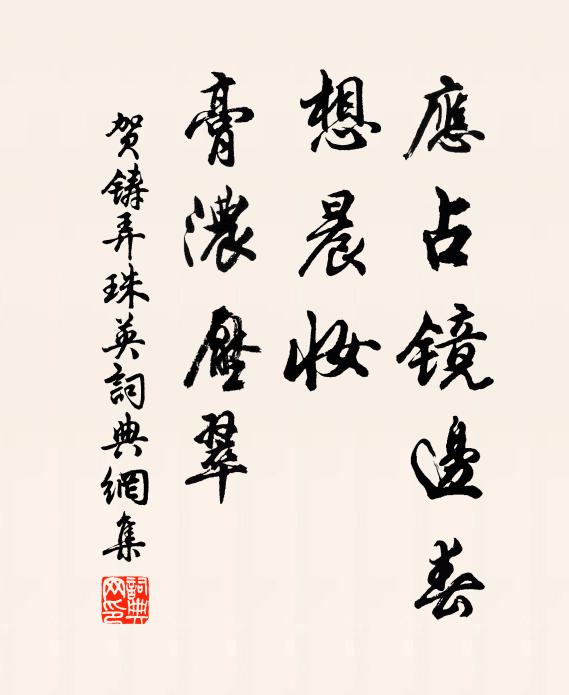 應占镜邊春
想晨妆
膏濃壓翠
贺铸弄珠英詞典網集
詞典网印